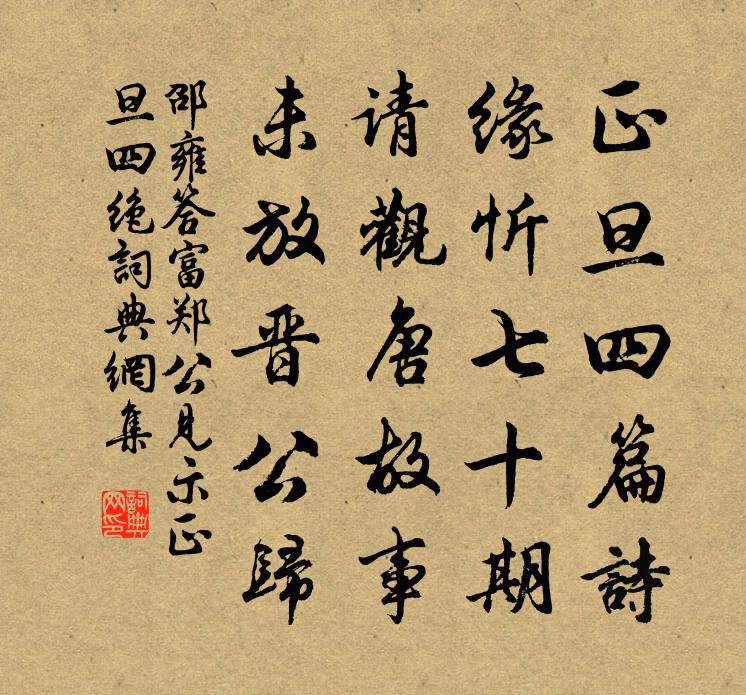 正旦四篇詩
緣忻七十期
请觀唐故事
未放晉公歸
邵雍答富郑公見示正
旦四绝詞典網集
詞典網印